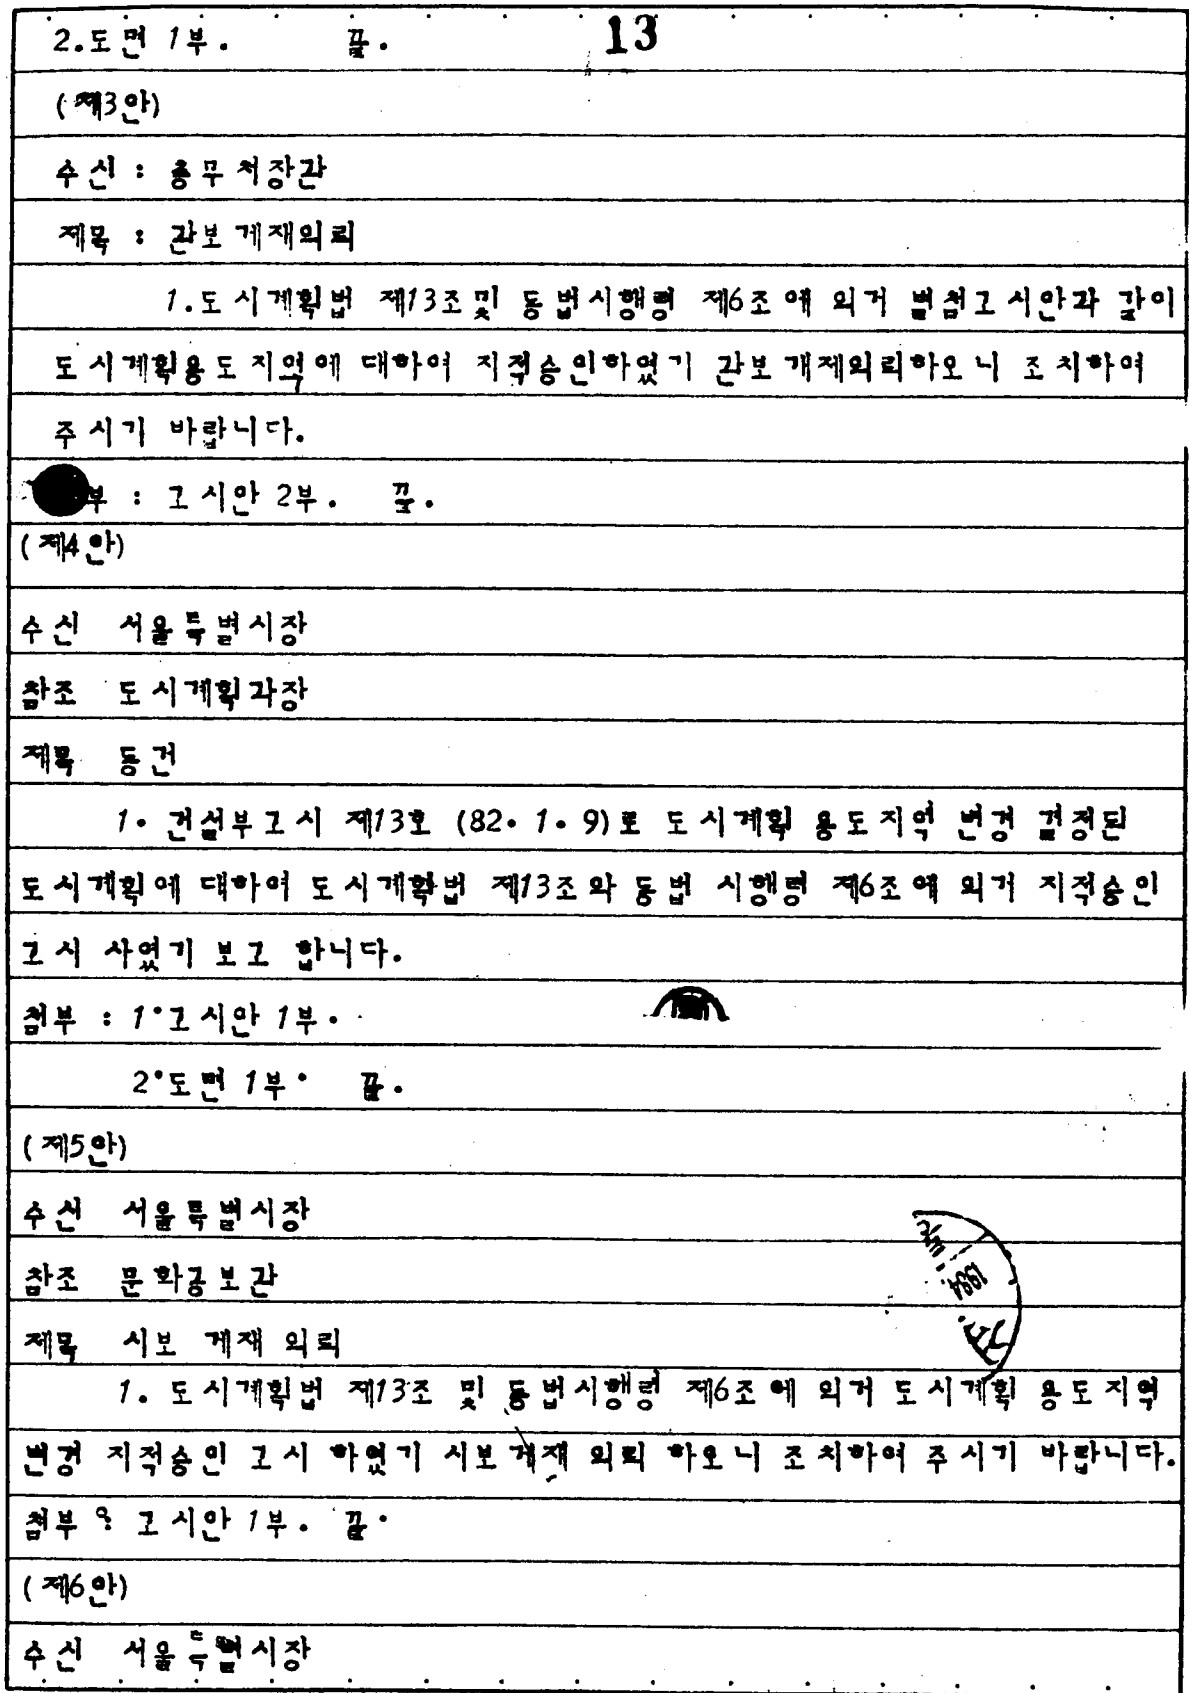 2.도면 1부. 끝. 13
(제3안)
수신 : 총무처장관
제목 : 관보게재의뢰
1.도시계획법 제13조및 동법시행령 제6조에 의거 별첨고시안과 같이
도시계획용도지역에 대하여 지적승인하였기 관보개제의뢰하오니 조치하여
주시기 바랍니다.
부 : 고시안 2부. 끝.
(제4안)
수신 서울특별시장
참조 도시계획과장
제목 동건
1. 건설부고시 제13호 (82. 1. 9)로 도시계획 용도지역 변경 결정된
도시계획에 대하여 도시계획법 제13조와 동법 시행령 제6조에 의거 지적승인
고시 사였기 보고 합니다.
첨부 : 1.고시안 1부.
2.도면 1부. 끝.
(제5안)
수신 서울특별시장
참조 문화공보관
제목 시보 게재 의뢰
1. 도시계획법 제13조 및 동법시행령 제6조에 의거 도시계획 용도지역
변경 지적승인 고시 하였기 시보게재 의뢰 하오니 조치하여 주시기 바랍니다.
첨부 : 고시안 1부. 끝.
(제6안)
수신 서울특별시장